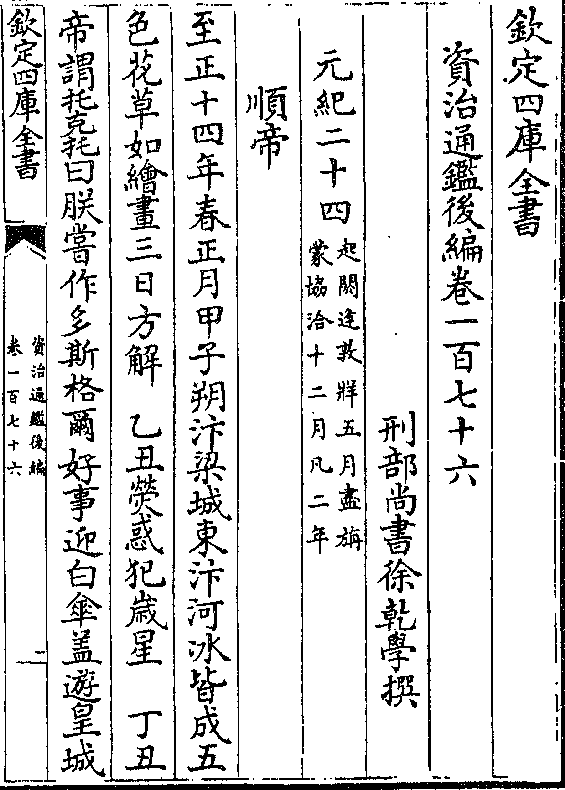 欽定四庫全書
資治通鑑後編卷一百七十六
刑部尚書徐乾學撰
元紀二十四
起閼逢敦牂五月盡旃
蒙協洽十二月凡二年
順帝
至正十四年春正月甲子朔汴梁城東汴河冰皆成五
色花草如繪畫三日方解 乙丑熒惑犯歲星 丁丑
帝謂托克托曰朕嘗作多斯格爾好事迎白傘盖遊皇城
欽定四庫全書
資治通鑑後編
卷一百七十六